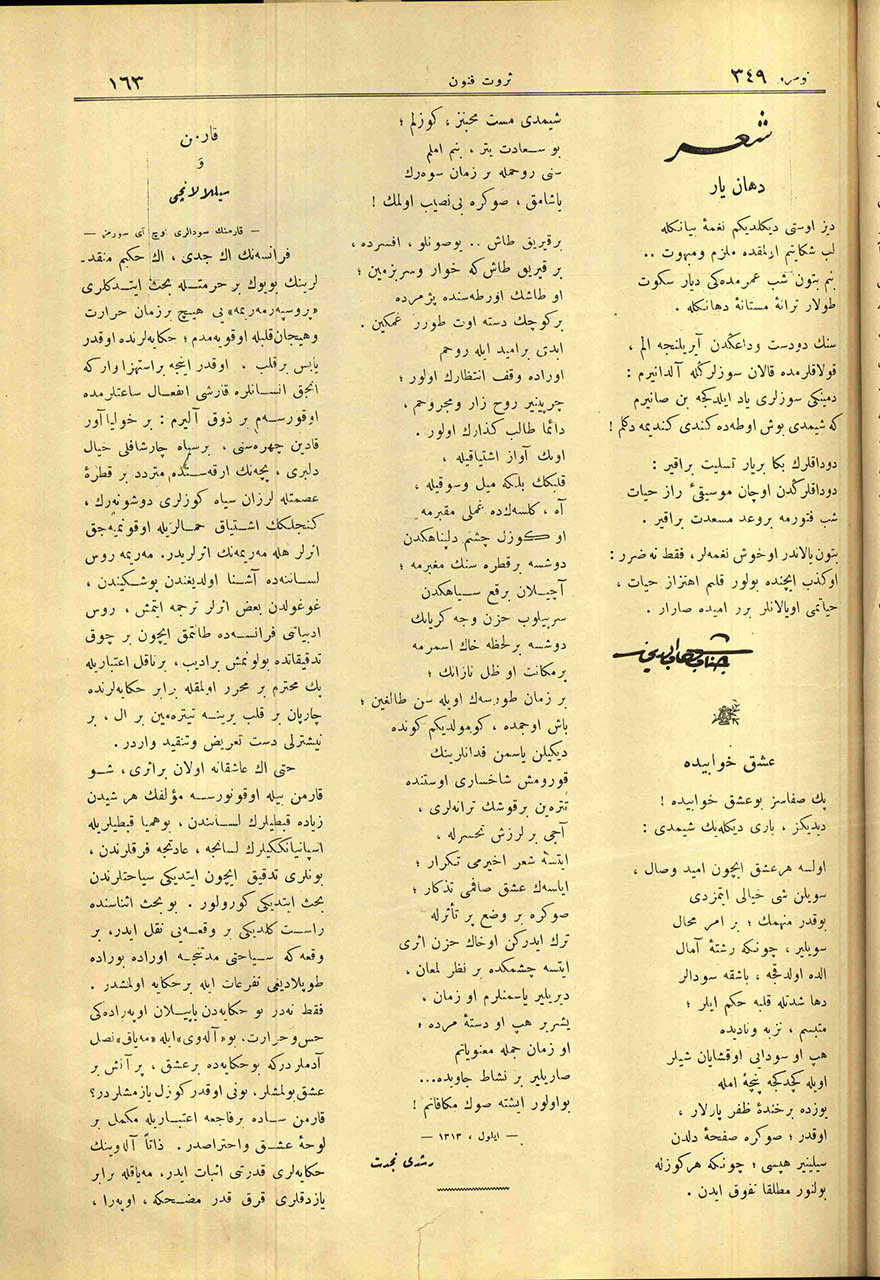 نومرو ٣٤٩
ثروت فنون
١٦٣
شعر
دهان يار
ديز اوستى ديكلديكم نغمهٔ بيانكله
لب شكايتم ازلمقده ملزم ومبهوت ..
بنم بتون شب عمرمده‌كى ديار سكوت
طولار ترانهٔ مستانهٔ دهانكله .
سنك دودست وداعكدن آيريلنجه الم ،
قولاقلرمده قالان سوزلركله آلدانيرم :
دمينكى سوزلرى ياد ايلدكجه بن صانيرم
كه شيمدى بوش اوطه‌ده كندى كنديمه دكلم !
دوداقلرك بكا برياز تسليت براقير :
دوداقلركدن اوچان موسيقئ راز حيات
شب فتورمه بروعد مسعدت براقير .
بتون يالاندر اوخوش نغمه‌لر، فقط نه ضرر :
اوكذب ايچنده بولور قلبم اهتزاز حيات ،
حياتمى اويالانلر برر اميده صارار .
جناب شهاب الدين
عشق خوابيده
پك صفاسز بوعشق خوابيده !
ديديكز ، بارى ديكله‌يك شيمدى :
اولسه هرعشق ايچون اميد وصال ،
سويلن شى خيالى ايتمزدى
بوقدر منهمك ؛ بر امر محال
سويلير ، چونكه رشتهٔ آمال
الده اولدقجه ، باشقه سودالر
دها شدتله قلبه حكم ايلر ؛
متبسم ، نزيه وناديده
هپ او سودايى اوقشايان شيلر
اويله كچدكجه پنجهٔ امله
يوزده برخندهٔ ظفر پارلار ،
اوقدر ؛ صوكره صفحهٔ دلدن
سيلينير هپسى ؛ چونكه هركوزله
بولنور مطلقا تفوق ايدن .
شيمدى مست محبتز ، كوزلم ؛
بو سعادت يتر ، بنم املم
سنى روحمله بر زمان سوه‌رك
ياشامق ، صوكره بى‌نصيب اولمك !
برقيريق طاش .. يوصونلو ، افسرده ،
بر قيريق طاش‌كه خوار وسربزمين ؛
او طاشك اورطه‌سنده پژمرده
بركوچك دسته اوت طورر غمكين .
ابدى براميد ايله روحم
اوراده وقف انتظارك اولور ؛
چرپينير روح زار ومجروحم ،
دائما طالب كذارك اولور .
اونك آواز اشتياقيله ،
قلبكك بلكه ميل وسوقيله ،
آه ، كلسه‌ك‌ده غملى مقبرمه
او كوزل چشم دلپناهكدن
دوشسه برقطره سنك مغبرمه ؛
آچيلان برقع سياهكدن
سرپيلوب حزن وجه كريانك
دوشسه برلحظه خاك اسمرمه
پرمكانت او ظل نازانك ؛
بر زمان طورسه‌ك اويله سن طالغين ؛
باش اوجمده ، كومولديكم كونده
ديكيلن ياسمن فدانلرينك
قورومش شاخسارى اوستنده
تتره‌ين برقوشك ترانه‌لرى ،
آجى بر لرزش تحسرله ،
ايتسهٔ شعر اخيرمى تكرار ؛
ايلسه‌ك عشق صافمى تذكار ؛
صوكره بر وضع پر تأثرله
ترك ايدركن اوخاك حزن اثرى
ايتسه چشمكده بر نظر لمعان ،
ديريلير ياسمنلرم او زمان ،
يشرير هپ او دستهٔ مرده ؛
او زمان جمله معنوياتم
صاريلير بر نشاط جاويده...
بواولور ايشته صوك مكافاتم !
— ايلول ، ١٣١٣ —
رشدى نجدت
قارمن
و
سيللالانچى
— قارمنك سودالرى اوچ آى سورمز —
فرانسه‌نك اك جدى ، اك حكيم منقد-
لرينك بويوك بر حرمتله بحث ايتدكلرى
«پروسپه‌رمه‌ريمه» يى هيچ برزمان حرارت
وهيجان‌قلبله اوقويه‌مدم ؛ حكايه‌لرنده اوقدر
يابس برقلب . اوقدر اينجه براستهزا واركه
انجق انسانلره قارشى انفعال ساعتلرمده
اوقورسه‌م بر ذوق آليرم : بر خوليا آور
قادين چهره‌سنى ، برسياه چارشافلى خيال
دلبرى ، پچه‌نك ارقه‌سندم متردد بر قطرهٔ
عصمتله لرزان سياه كوزلرى دوشونه‌رك ،
كنجلكك اشتياق حمالريله اوقونميه‌جق
اثرلر هله مه‌ريمه‌نك اثرلريدر. مه‌ريمه روس
لساننه‌ده آشنا اولديغندن پوشكيندن ،
غوغولدن بعض اثرلر ترجمه ايتمش ، روس
ادبياتنى فرانسه‌ده طانتمق ايچون بر چوق
تدقيقاتده بولونمش براديب ، برناقل اعتباريله
پك محترم بر محرر اولمقله برابر حكايه‌لرنده
چارپان بر قلب يرينه تيتره‌مين بر ال ، بر
نيشترلى دست تعريض وتنقيد واردر.
حتى اك عاشقانه اولان براثرى ، شو
قارمن بيله اوقونورسه مؤلفك هر شيدن
زياده قبطيلرك لسانندن ، بوهميا قبطيلريله
اسپانيانككيلرك لسانجه ، عادتجه فرقلرندن ،
بونلرى تدقيق ايچون ايتديكى سياحتلرندن
بحث ايتديكى كورولور . بو بحث اثناسنده
راست كلديكى بر وقعه‌يى نقل ايدر، بر
وقعه كه سياحتى مدتنجه اوراده بوراده
طوپلاديغى تفرعات ايله برحكايه اولمشدر .
فقط نه‌در بو حكايه‌دن ياپيلان اوپه‌راده‌كى
حس وحرارت. بو «آله‌وى» ايله «مه‌ياق» نصل
آدملردركه بو حكايه‌ده برعشق ، پر آتش بر
عشق بولمشلر. بونى اوقدر كوزل يازمشلردر؟
قارمن ساده برفاجعه اعتباريله مكمل بر
لوحهٔ عشق واحتراصدر. ذاتاً آله‌وينك
حكايه‌لرى قدرتنى اثبات ايدر. مه‌ياقله برابر
يازدقلرى قرق قدر مضحكه ، اوپه‌را ،